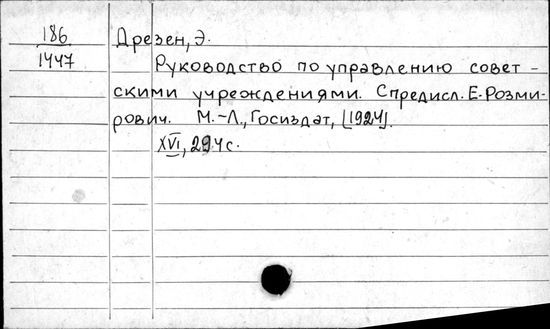 186
1447
Дрезен, Э.
Руководство по управлению совет-
скими учреждениями. С предисл. Е. Розми-
рович. М.-Л., Госиздат, [1924].
XVI, 294 с.